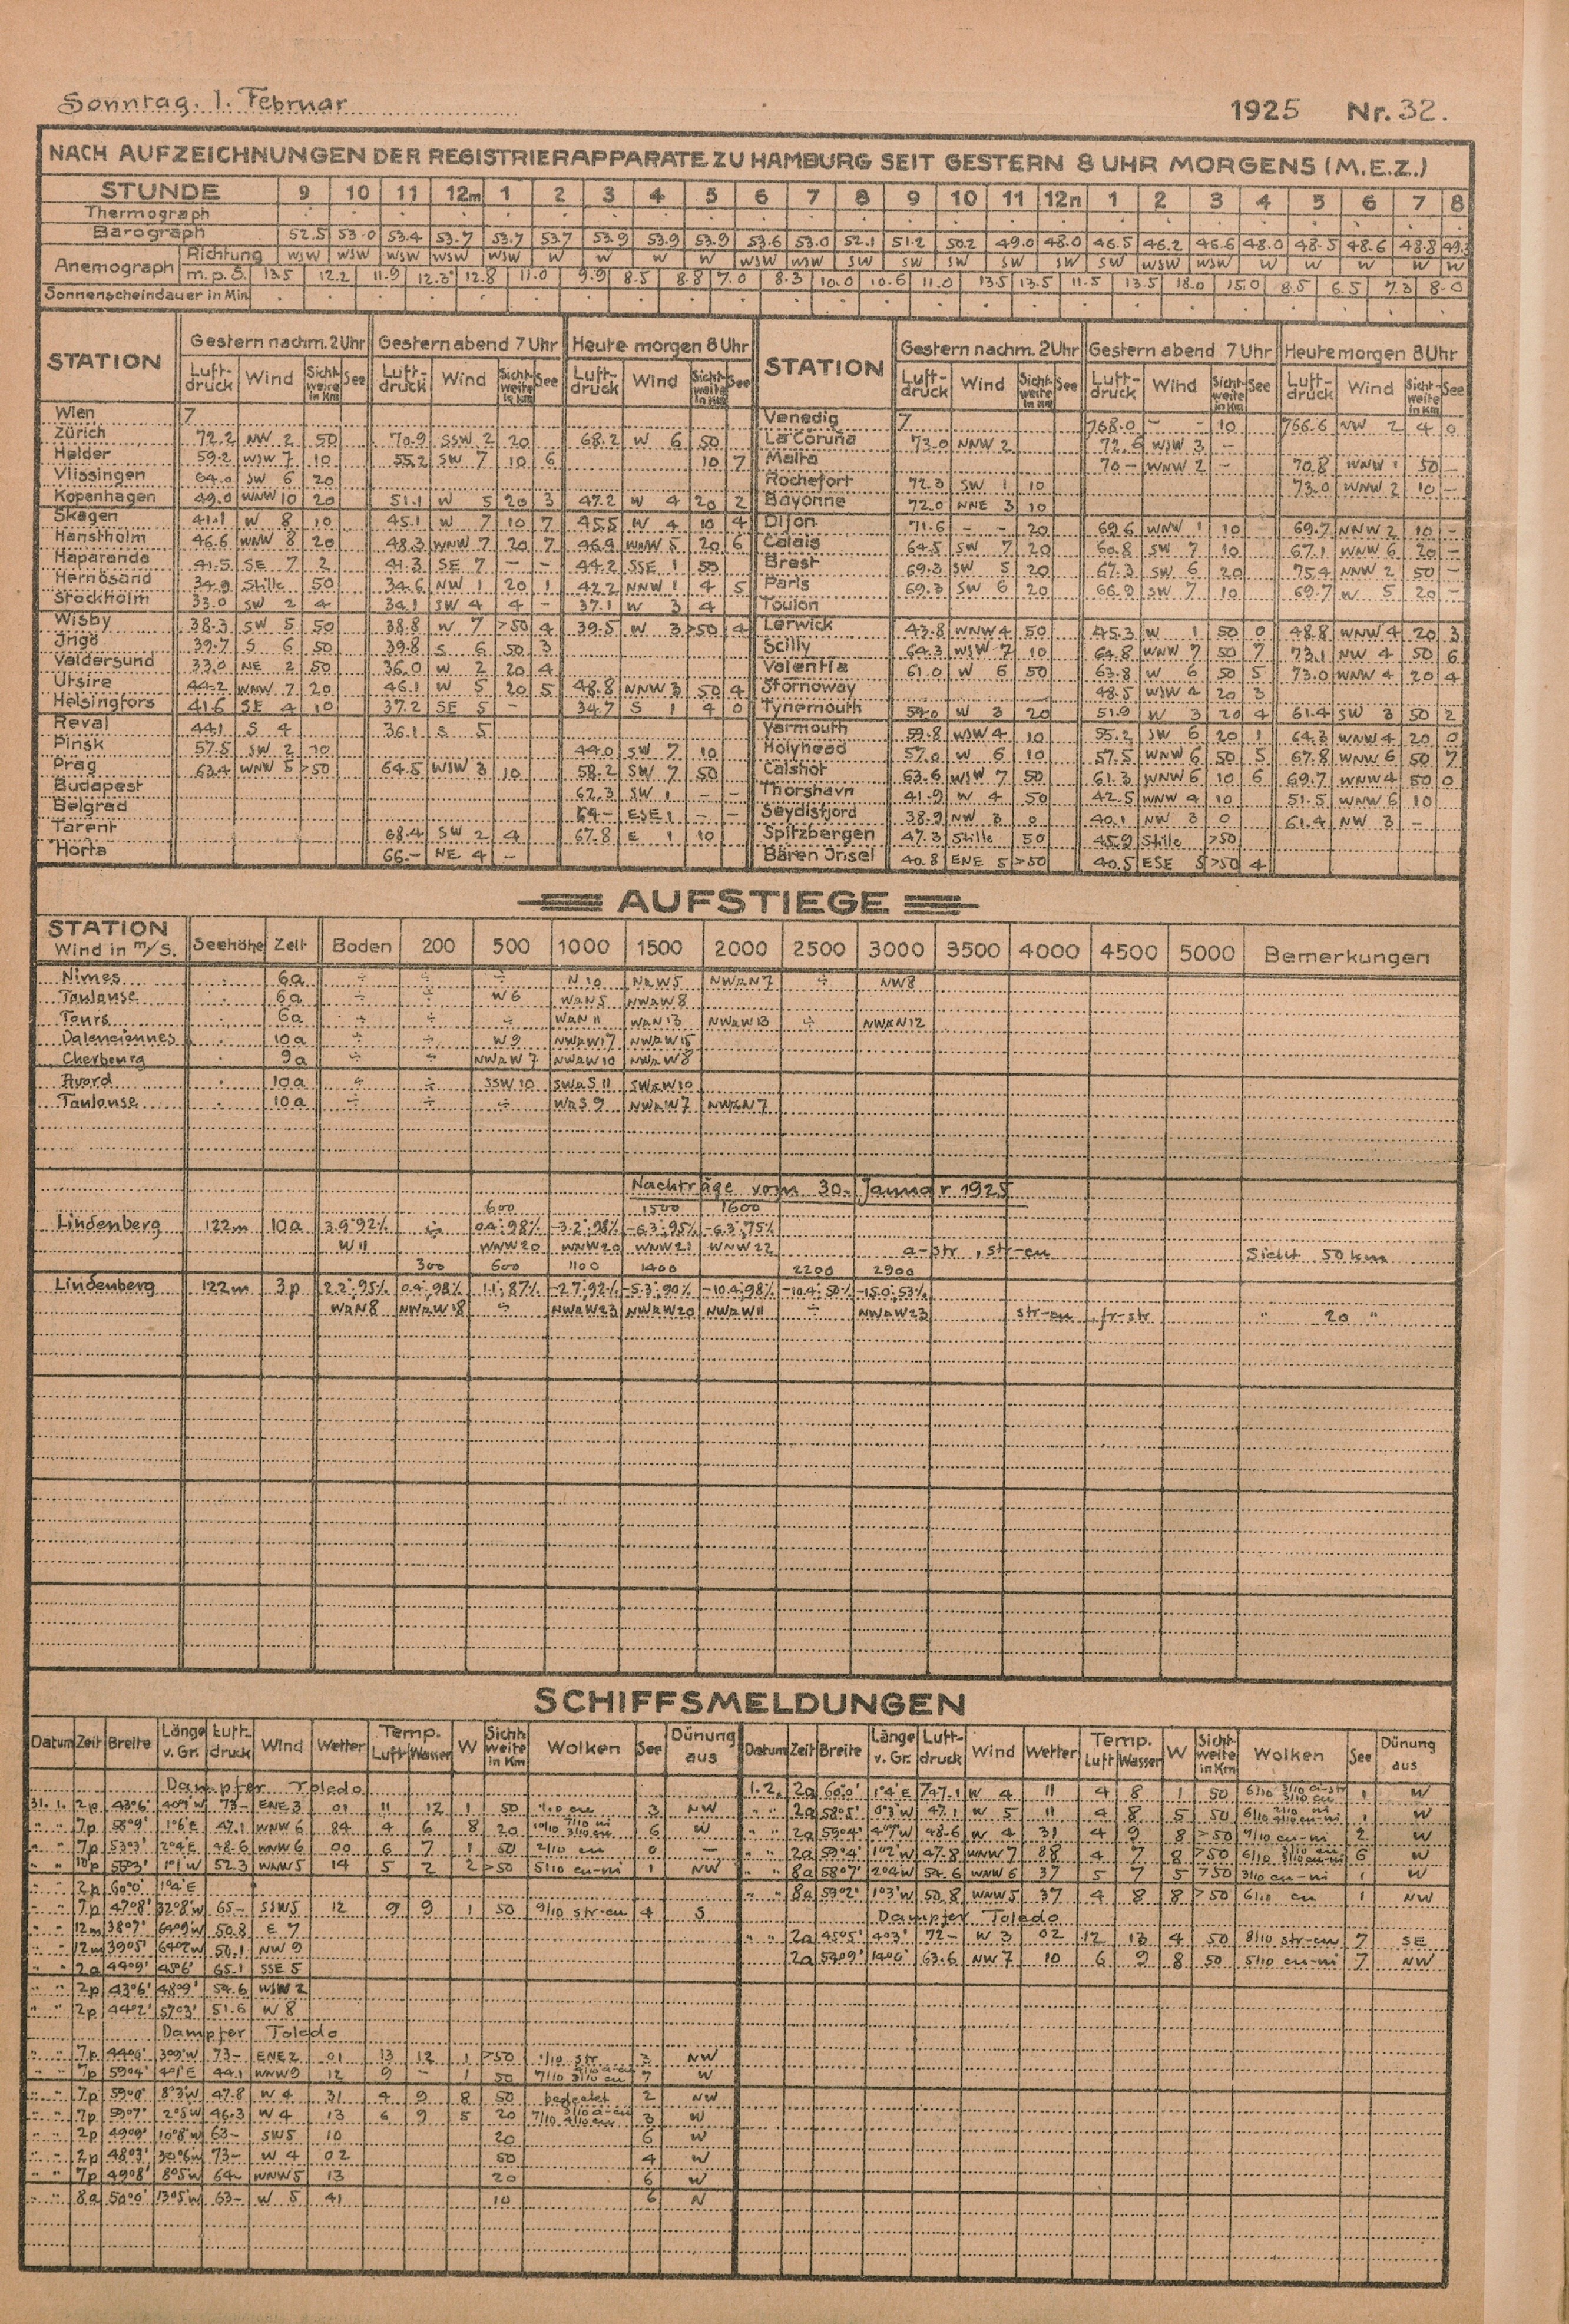 Sonntag. 1. Februar 1925 Nr. 32.
NACH AUFZEICHNUNGEN DER REGISTRIERAPPARATE ZU HAMBURG SEIT GESTERN 8 UHR MORGENS (M.E.Z.)
STUNDE 9 10 11 12m 1 2 3 4 5 6 7 8 9 10 11 12n 1 2 3 4 5 6 7 8
Thermograph
Barograph 52.5 53.0 53.4 53.7 53.7 53.7 53.9 53.9 53.9 53.6 53.0 52.1 51.2 50.2 49.0 48.0 46.5 46.2 46.6 48.0 48.5 48.6 48.8
Anemograph Richtung WSW WSW WSW WSW WSW W W W W WSW WSW SW SW SW SW SW SW WSW WSW W W W W W
m.p.S. 13.5 12.2 11.9 12.3 12.8 11.0 9.9 8.5 8.8 7.0 8.3 10.0 10.6 11.0 13.5 13.5 11.5 13.5 18.0 15.0 8.5 6.5 7.3 8.0
Sonnenscheindauer in Min.
STATION Gestern nachm. 2 Uhr Gestern abend 7 Uhr Heute morgen 8 Uhr STATION Gestern nachm. 2 Uhr Gestern abend 7 Uhr Heute morgen 8 Uhr
Luft-druck Wind Sicht-weite in Km See Luft-druck Wind Sicht-weite in Km See Luft-druck Wind Sicht-weite in Km See Luft-druck Wind Sicht-weite in Km See Luft-druck Wind Sicht-weite in Km See Luft-druck Wind Sicht-weite in Km See
Wien 7 Venedig 7 768.0 – – 10 766.6 NW 2 4 0
Zürich 72.2 NW 2 50 70.9 SSW 2 20 68.2 W 6 50 La Coruña 73.0 NNW 2 72.6 WSW 3 –
Helder 59.2 WSW 7 10 55.2 SW 7 10 6 10 7 Malta 70– WNW 2 – 70.8 WNW 1 50 –
Vlissingen 64.0 SW 6 20 Rochefort 72.3 SW 1 10 73.0 WNW 2 10 –
Kopenhagen 49.0 WNW 10 20 51.1 W 5 20 3 47.2 W 4 20 2 Bayonne 72.0 NNE 3 10
Skagen 41.1 W 8 10 45.1 W 7 10 7 45.5 W 4 10 4 Dijon 71.6 – – 20 69.6 WNW 1 10 69.7 NNW 2 10 –
Hanstholm 46.6 WNW 8 20 48.3 WNW 7 20 7 46.9 WNW 5 20 6 Calais 64.5 SW 7 20 60.8 SW 7 10 67.1 WNW 6 20 –
Haparanda 41.5 SE 7 2 41.3 SE 7 – – 44.2 SSE 1 50 Brest 69.3 SW 5 20 67.3 SW 6 20 75.4 NNW 2 50 –
Hernösand 34.9 Stille 50 34.6 NW 1 20 1 42.2 NNW 1 4 5 Paris 69.3 SW 6 20 66.9 SW 7 10 69.7 W 5 20 –
Stockholm 33.0 SW 2 4 34.1 SW 4 4 – 37.1 W 3 4 Toulon
Wisby 38.3 SW 5 50 38.8 W 7 >50 4 39.5 W 3 >50 4 Lerwick 43.8 WNW 4 50 45.3 W 1 50 0 48.8 WNW 4 20 3
Ingö 39.7 S 6 50 39.8 S 6 50 3 Scilly 64.3 WSW 7 10 64.8 WNW 7 50 7 73.1 NW 4 50 6
Valdersund 33.0 NE 2 50 36.0 W 2 20 4 Valentia 61.0 W 6 50 63.8 W 6 50 5 73.0 WNW 4 20 4
Utsire 44.2 WNW 7 20 46.1 W 5 20 5 48.8 NNW 3 50 4 Stornoway 48.5 WSW 4 20 3
Helsingfors 41.6 SE 4 10 37.2 SE 5 – 34.7 S 1 4 0 Tynemouth 54.0 W 3 20 51.9 W 3 20 4 61.4 SW 3 50 2
Reval 44.1 S 4 36.1 S 5 Yarmouth 59.8 WSW 4 10 55.2 SW 6 20 1 64.3 WNW 4 20 0
Pinsk 57.5 SW 2 10 44.0 SW 7 10 Holyhead 57.0 W 6 10 57.5 WNW 6 50 5 67.8 WNW 6 50 7
Prag 63.4 WNW 5 >50 64.5 WSW 3 10 58.2 SW 7 50 Calshot 63.6 WSW 7 50 61.3 WNW 6 10 6 69.7 WNW 4 50 0
Budapest 62.3 SW 1 – – Thorshavn 41.9 W 4 50 42.5 WNW 4 10 51.5 WNW 6 10
Belgrad 64– ESE 1 – – Seydisfjord 38.9 NW 3 0 40.1 NW 3 0 61.4 NW 3 –
Tarent 68.4 SW 2 4 67.8 E 1 10 Spitzbergen 47.3 Stille 50 45.9 Stille >50
Horta 66.– NE 4 – Bären Insel 40.8 ENE 5 >50 40.5 ESE 5 >50 4
AUFSTIEGE
STATION Wind in m/S. Seehöhe Zeit Boden 200 500 1000 1500 2000 2500 3000 3500 4000 4500 5000 Bemerkungen
Nimes 6a ÷ ÷ ÷ N 10 NzW5 NWzN7 ÷ NW8
Toulouse 6a ÷ ÷ W6 WzN5 NWzW8
Tours 6a ÷ ÷ ÷ WzN11 WzN13 NWzW13 ÷ NWzN12
Valenciennes 10a ÷ ÷ W9 NWzW17 NWzW15
Cherbourg 9a ÷ ÷ NWzW7 NWzW10 NWzW8
Avord 10a ÷ ÷ SSW10 SWzS11 SWzW10
Toulouse 10a ÷ ÷ ÷ WzS9 NWzW7 NWzN7
Nachträge vom 30. Januar 1925
600 1500 1600
Lindenberg 122m 10a 3.9°,92% ÷ 0.4°,98% -3.2°,98% -6.3°,95% -6.3°,75%
W11 WNW20 WNW20 WNW21 WNW22 a-str, str-cu Sicht 50 km
300 600 1100 1400 2200 2900
Lindenberg 122m 3p 2.2°,95% 0.4°,98% 1.1°,87% -2.7°,92% -5.3°,90% -10.4°,98% -10.4°,50% -15.0°,53%
WzN8 NWzW18 ÷ NWzW23 NWzW20 NWzW11 ÷ NWzW23 str-cu, fr-str " 20 "
SCHIFFSMELDUNGEN
Datum Zeit Breite Länge v. Gr. Luft-druck Wind Wetter Temp. Luft Wasser W Sicht-weite in Km Wolken See Dünung aus Datum Zeit Breite Länge v. Gr. Luft-druck Wind Wetter Temp. Luft Wasser W Sicht-weite in Km Wolken See Dünung aus
Dampfer Toledo 1.2. 2a 60°0' 1°4'E 747.1 W 4 11 4 8 1 50 1 W
31.1. 2p 43°6' 40°9'W 73– ENE 3 01 11 12 1 50 1/10 cu 3 NW " " 2a 58°5' 0°3'W 47.1 W 5 11 4 8 5 50 1 W
" " 7p 58°9' 1°6'E 47.1 WNW 6 84 4 6 8 20 6 W " " 2a 59°4' 4°7'W 48.6 W 4 31 4 9 8 >50 9/10 cu-ni 2 W
" " 7p 53°3' 2°4'E 48.6 WNW 6 00 6 7 1 50 2/10 cu 0 — " " 2a 59°4' 1°2'W 47.8 WNW 7 88 4 7 8 >50 6 W
" " 10p 1°1'W 52.3 WNW 5 14 5 2 2 >50 5/10 cu-ni 1 NW " " 8a 58°7' 2°4'W 54.6 WNW 6 37 5 7 5 >50 3/10 cu-ni 1 W
" " 2p 60°0' 1°4'E
" " 8a 59°2' 1°3'W 50.8 WNW 5 37 4 8 8 >50 6/10 cu 1 NW
" " 7p 47°8' 32°8'W 65– SSW 5 12 9 9 1 50 9/10 str-cu 4 S Dampfer Toledo
" " 12m 38°7' 64°9'W 50.8 E 7 " " 2a 45°5' 4°3' 72– W 3 02 12 13 4 50 8/10 str-cu 7 SE
" " 12m 39°5' 64°2'W 50.1 NW 9 2a 57°9' 14°0' 63.6 NW 7 10 6 9 8 50 5/10 cu-ni 7 NW
" " 2a 44°9' 45°6' 65.1 SSE 5
" " 2p 43°6' 48°9' 54.6 WSW 2
" " 2p 44°2' 57°3' 51.6 W 8
Dampfer Toledo
" " 7p 44°0' 30°9'W 73– ENE 2 01 13 12 1 >50 1/10 str 3 NW
" " 7p 59°4' 4°1'E 44.1 WNW 9 12 9 – 1 50 7 W
" " 7p 59°0' 8°3'W 47.8 W 4 31 4 9 8 50 bedeckt 2 NW
" " 7p 59°7' 2°5'W 46.3 W 4 13 6 9 5 20 3 W
" " 2p 49°9' 10°8'W 63– SW 5 10 20 6 W
" " 2p 48°3' 30°6'W 73– W 4 02 50 4 W
" " 7p 49°8' 8°5'W 64– WNW 5 13 20 6 W
" " 8a 50°0' 13°5'W 63– W 5 41 10 6 N